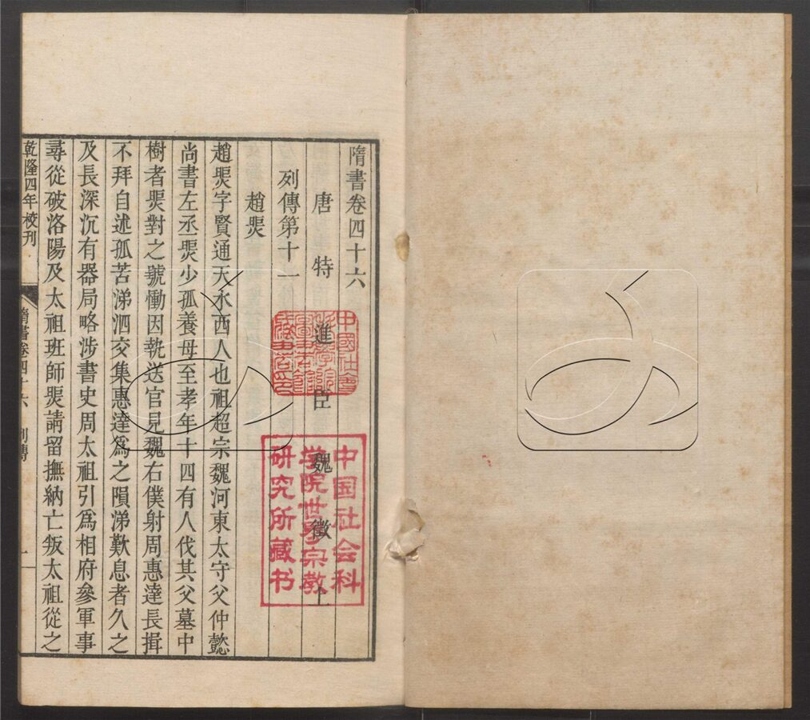 隋書卷四十六
唐特進臣魏徵上
列傳第十一
趙煚
趙煚字賢通天水西人也祖超宗魏河東太守父仲懿
尚書左丞煚少孤養母至孝年十四有人伐其父墓中
樹者煚對之號慟因執送官見魏右僕射周惠達長揖
不拜自述孤苦涕泗交集惠達爲之隕涕歎息者久之
及長深沉有器局略涉書史周太祖引爲相府參軍事
尋從破洛陽及太祖班師煚請留撫納亡叛太祖從之
乾隆四年校刊
隋書卷四十六 列傳 一
中國社會
中国社会科
学院世界宗教
研究所藏书